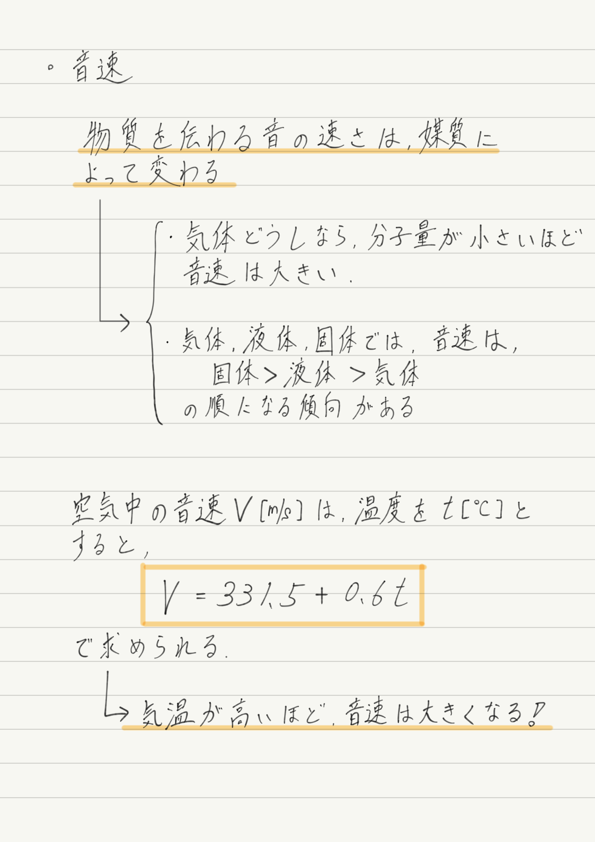 。音速
物質を伝わる音の速さは,媒質に
よって変わる
・気体どうしなら,分子量が小さいほど
音速は大きい.
・気体,液体,固体では,音速は,
固体>液体>気体
の順になる傾向がある
空気中の音速V[m/s]は,温度をt[℃]と
すると,
V = 331.5 + 0.6t
で求められる.
気温が高いほど,音速は大きくなる!